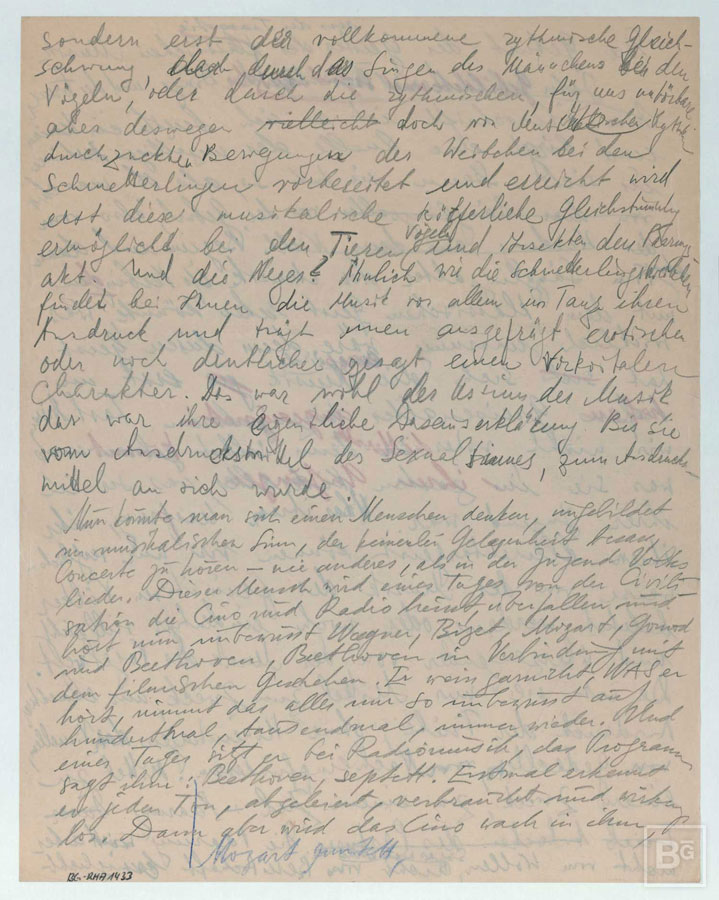 sondern erst der vollkommene rythmische Gleich-
schwung, durch das Singen des Männchens bei den
Vögeln, oder durch die rythmischen, für uns unhörbare
aber deswegen vielleicht doch von
durchzuckten Bewegungen des Weibchen bei den
Schmetterlingen vorbereitet und erreicht wird
erst diese musikalische Gleichstimmung
ermöglicht bei den Tieren Vögeln und Insekten den
akt. Und die Neger? Ähnlich wie die Schmetterlings
findet bei Ihnen die Musik vor allem im Tanz ihren
Ausdruck und trägt einen ausgeprägt erotischen
oder noch deutlicher gesagt einen Vorkoitalen
Charakter. Das war wohl der Ursinn der Musik
das war ihre eigentliche Daseinserklärung. Bis sie
vom Ausdrucksmittel des Sexual, zum Ausdrucks-
mittel an sich wurde
Nun könnte man sich einen Menschen denken, ungebildet
im musikalischen Sinn, der keinerlei Gelegenheit besass,
Concerte zu hören – nie anderes, als in der Jugend Volks
lieder. Dieser Mensch wird eines Tages von der Civili-
sation die Cino und Radio heisst überfallen und
hört nun unbewusst Wagner, Bizet, Mozart, Gounod
und Beethoven, Beethoven in Verbindung mit
dem filmischen Geschehen. Er weis garnicht, WAS er
hört, nimmt das alles nur so unbewusst auf
hundertmal, tausendmal, immer wieder. Und
eines Tages sitzt er bei Radiomusik, das Programm
sagt ihm: Beethoven, septett. Erstmal erkennt
er jeden Ton, abgeleiert, verbraucht und wirkungs
los. Dann aber wird das Cino wach in ihm,
Mozart quintett
BG-RHA 1433
BG